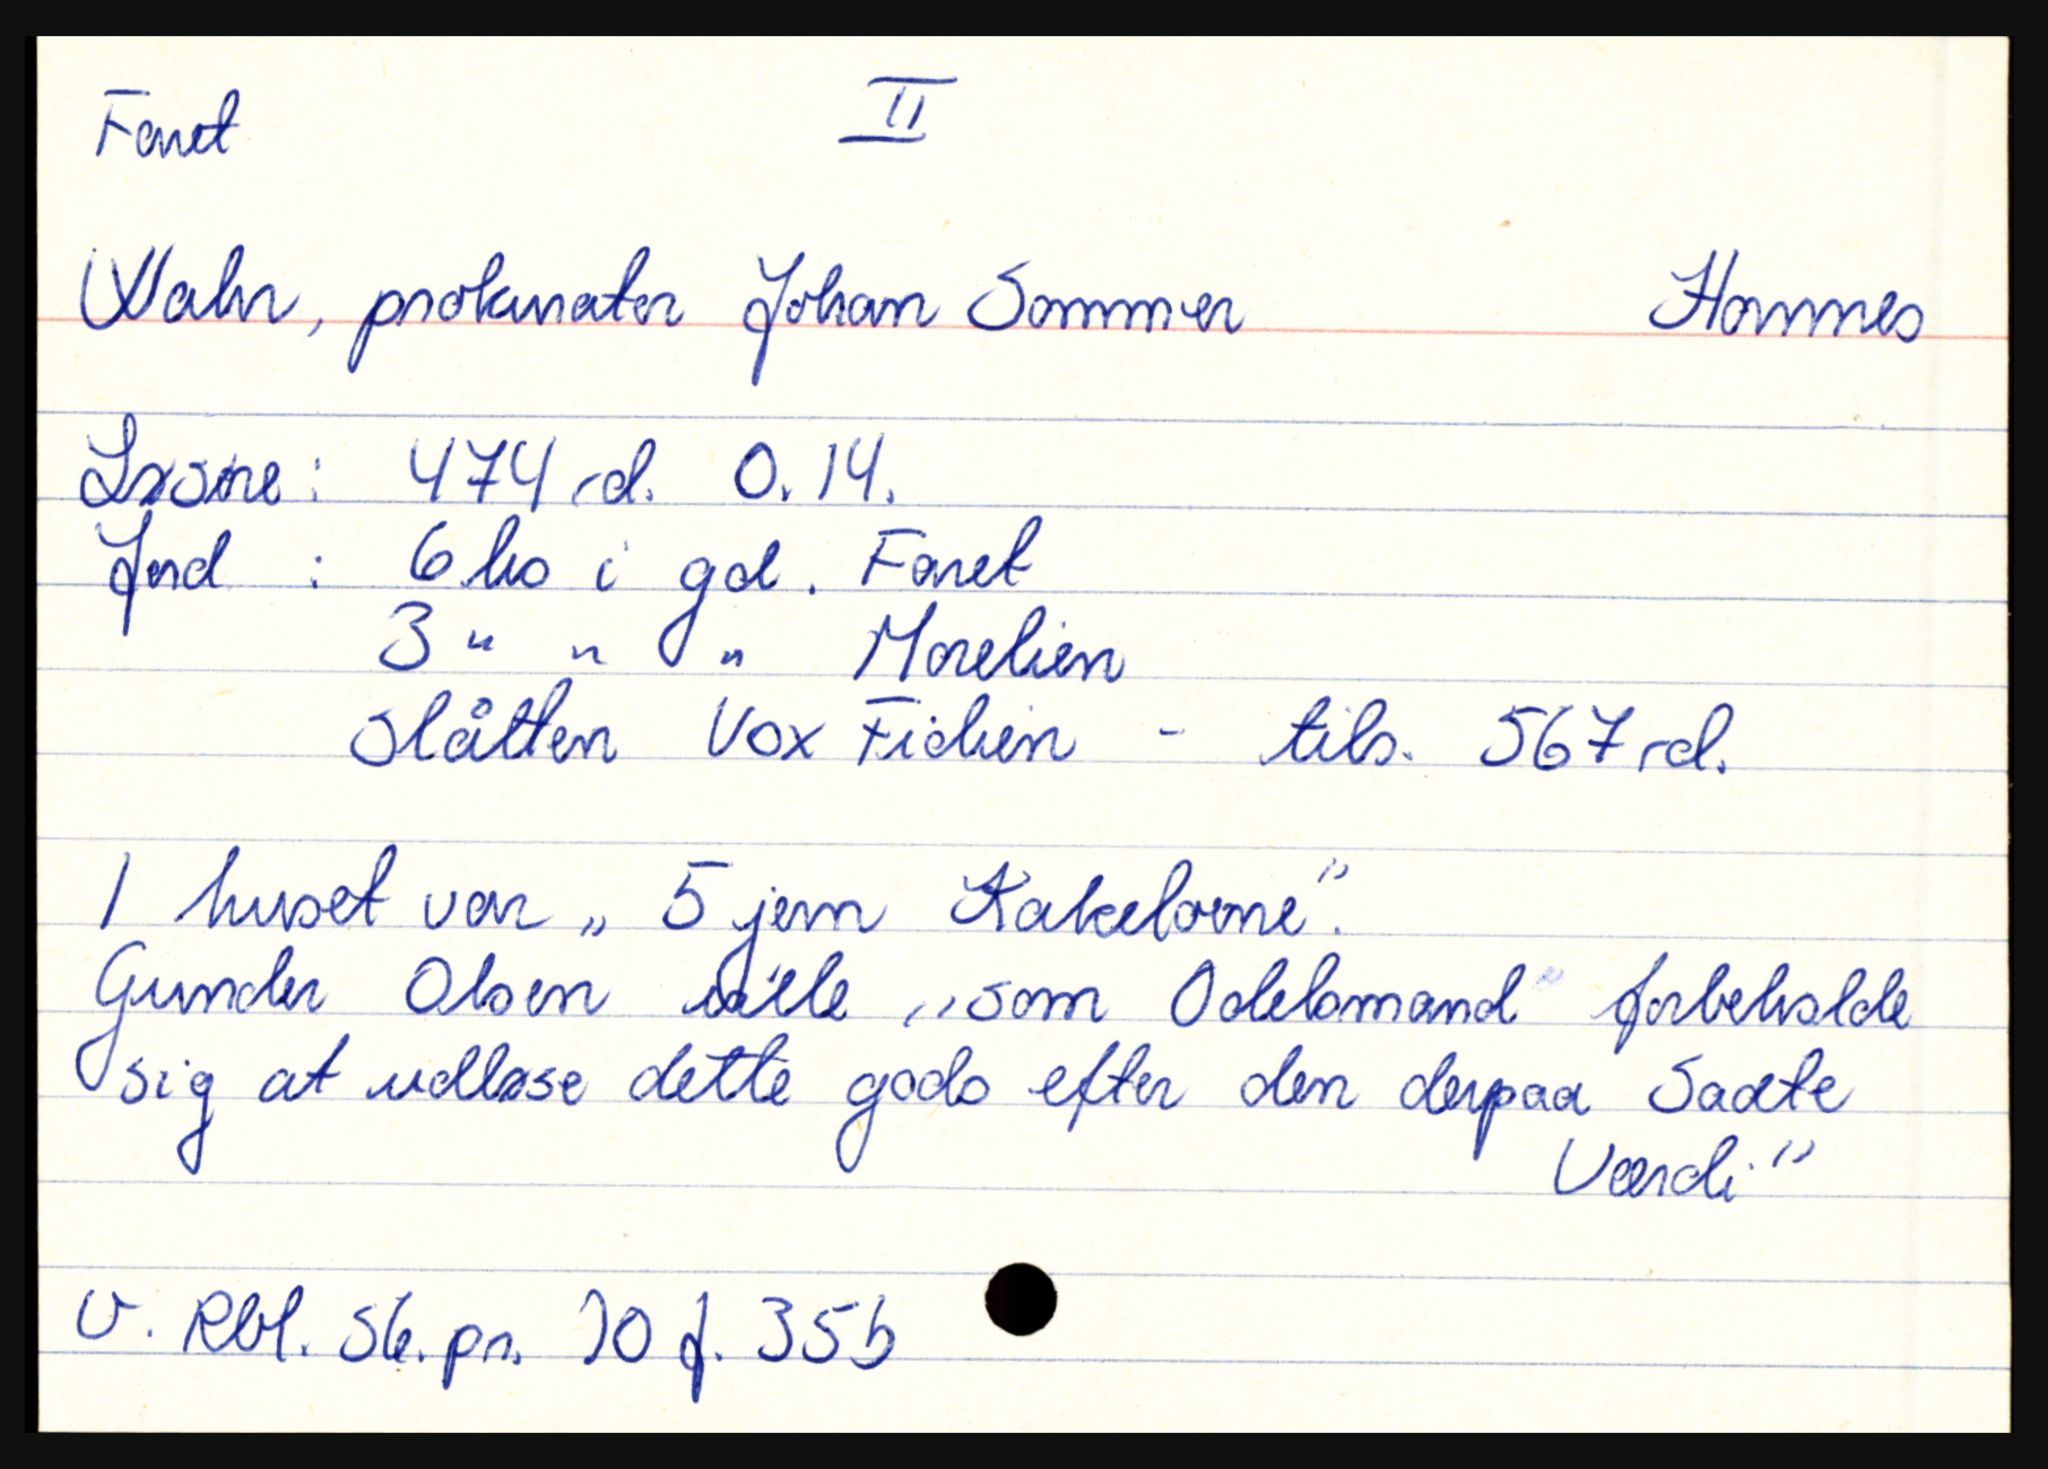 Faret II
Wahr, prokurator Johan Sommer Homnes
Løsøre: 474 rd. 0. 14.
Jord : 6 hs i gd. Faret
3 " " " Morelien
Slåtten Vox Fidien - tils. 567 rd.
I huset var „ 5 jern Kakelovne".
Gunder Olsen ville „som Odelsmand" forbeholde
sig at udløse dette gods efter den derpaa Sadte
Værdi"
V. Rbl. Sk. pr. 10 f. 35b